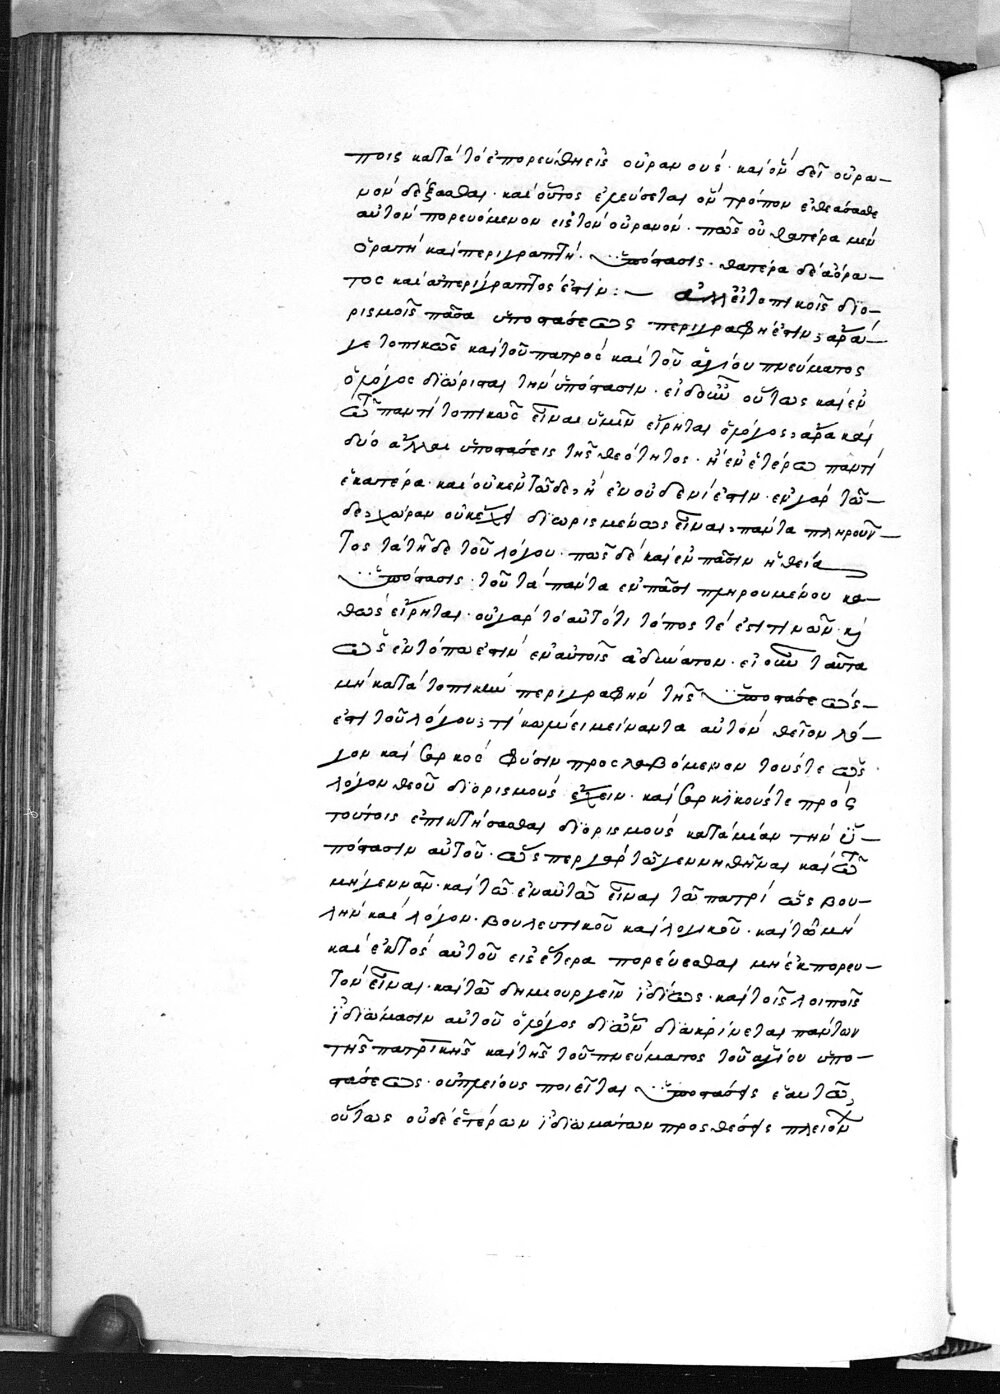 ποις κατὰ τὸ ἐπορεύθη εἰς οὐρανούς· καὶ ὃν δεῖ οὐρα-
νὸν δέξασθαι· καὶ οὗτος ἐλεύσεται ὃν τρόπον ἐθεάσασθε
αὐτὸν πορευόμενον εἰς τὸν οὐρανόν· πῶς οὐ θατέρα μὲν
ὁρατὴ καὶ περιγραπτὴ ὑπόστασις· θατέρα δὲ ἀόρα-
τος καὶ ἀπερίγραπτός ἐστιν :— ἀλλ' εἰ τοπικοῖς διο-
ρισμοῖς πᾶσα ὑποστάσεως περιγραφή ἐστιν, ἄρά
γε τοπικῶς καὶ τοῦ πατρὸς καὶ τοῦ ἁγίου πνεύματος
ὁ λόγος διώρισται τὴν ὑπόστασιν· εἰ δ' οὖν οὕτως καὶ ἐν
ᾧ παντὶ τοπικῶς εἶναι ὑμῖν εἴρηται ὁ λόγος, ἄρα καὶ
δύο ἄλλαι ὑποστάσεις τῆς θεότητος· ἢ ἐν ἑτέρω παντὶ
ἑκατέρα· καὶ οὐκ ἐν τῶδε, ἢ ἐν οὐδενί ἐστιν· ἐν γὰρ τῶ-
δε χώραν οὐκ ἔχει διωρισμένως εἶναι, πάντα πληροῦν-
τος τὰ τῆδε τοῦ λόγου· πῶς δὲ καὶ ἐν πᾶσιν ἡ θεία
ὑπόστασις· τοῦ τὰ πάντα ἐν πᾶσι πληρουμένου κα-
θὼς εἴρηται· οὐ γὰρ τὸ αὐτὸ τι τόπος τέ ἐστί τινων· καὶ
ὡς ἐν τόπω ἐστὶν ἐν αὐτοῖς ἀδύνατον· εἰ οὖν ταῦτα
μὴ κατὰ τοπικὴν περιγραφὴν τῆς ὑποστάσεώς
ἐπὶ τοῦ λόγου, τί κωλύει μείναντα αὐτὸν θεῖον λό-
γον καὶ σαρκὸς φύσιν προσλαβόμενον τούς τε ὡς
λόγον θεοῦ διορισμοὺς ἔχειν· καὶ σαρκικούς τε πρὸς
τούτοις ἐπικτήσασθαι διορισμοὺς κατὰ μίαν τὴν ὑ-
πόστασιν αὐτοῦ· ὥσπερ γὰρ τῶ γεννηθῆναι καὶ τῶ
μὴ γεννᾶν· καὶ τῶ ἐν αὐτῶ εἶναι τῶ πατρὶ ὡς βου-
λὴν καὶ λόγον· βουλευτικοῦ καὶ λογικοῦ· καὶ τῶ μὴ
καὶ ἐκτὸς αὐτοῦ εἰς ἕτερα πορεύεσθαι μὴ ἐκπορευ-
τὸν εἶναι· καὶ τῶ δημιουργεῖν ἰδίως· καὶ τοῖς λοιποῖς
ἰδιώμασιν αὐτοῦ ὁ λόγος δι' ὧν διακρίνεται πάντων
τῆς πατρικῆς καὶ τῆς τοῦ πνεύματος τοῦ ἁγίου ὑπο-
στάσεως· οὐ πλείους ποιεῖται ὑποστάσεις ἑαυτῶ,
οὕτως οὐδὲ ἑτέρων ἰδιωμάτων προσθέσεις πλειόν